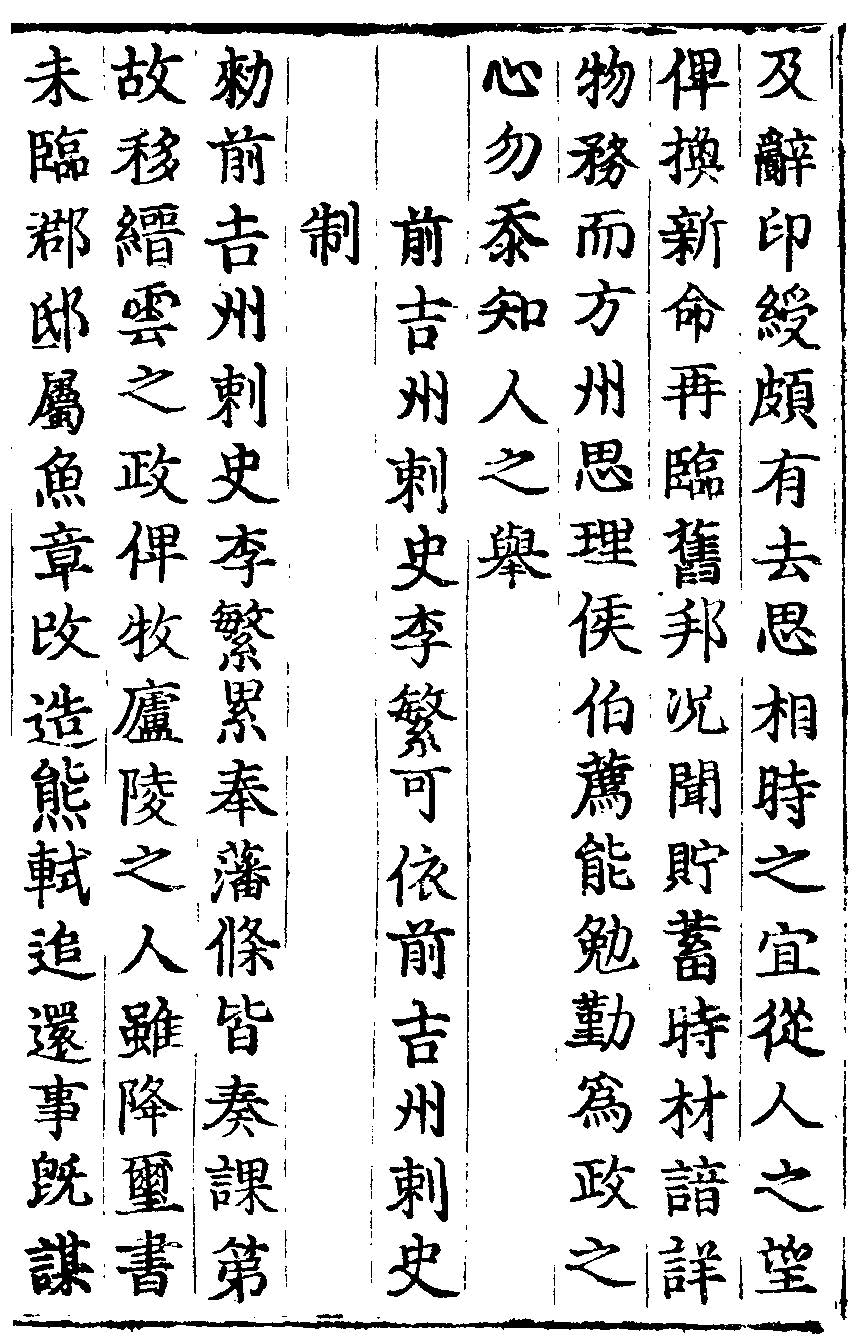 及辭印綬頗有去思相時之宜從人之望
俾換新命再臨舊邦况聞貯蓄時材諳詳
物務而方州思理侯伯薦能勉勤爲政之
心勿忝知人之舉
前吉州刺史李繁可依前吉州刺史
制
勑前吉州刺史李繁累奉藩條皆奏課第
故移縉雲之政俾牧廬陵之人雖降璽書
未臨郡邸屬魚章改造熊軾追還事旣謀